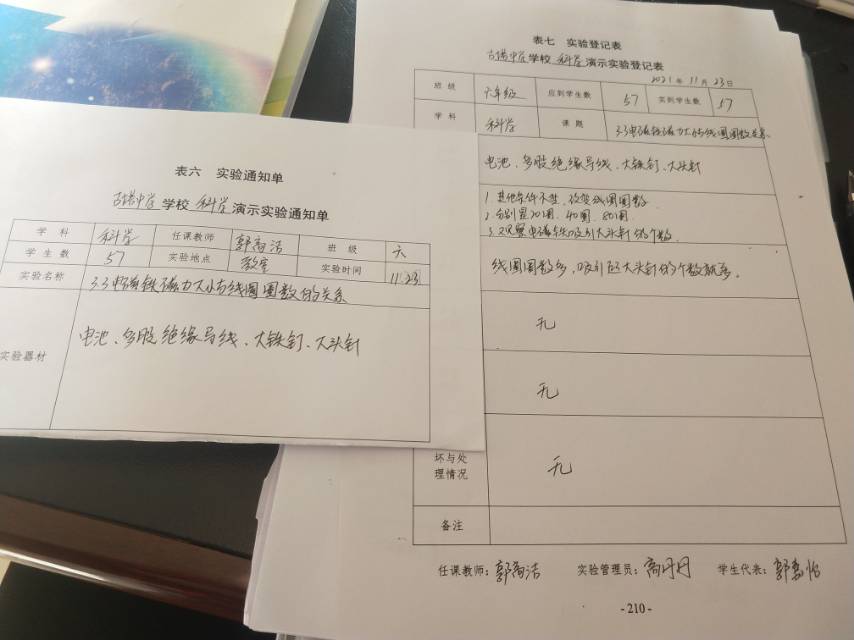 表六 实验通知单
学校 科学 演示实验通知单
学科 科学 任课教师 郭高洁 班级 六
学生数 57 实验地点 教室 实验时间 11.23
实验名称 3.3电磁铁磁力大小与线圈圈数的关系
实验器材 电池、多股绝缘导线、大铁钉、大头针
表七 实验登记表
学校 科学 演示实验登记表
2021年11月23日
班级 六年级 应到学生数 57 实到学生数 57
学科 科学 课题 3.3电磁铁磁力大小与线圈圈数关系
电池、多股绝缘导线、大铁钉、大头针
1.其他条件不变,改变线圈圈数
2.分别是20圈、40圈、80圈.
3.观察电磁铁吸引大头针的个数.
线圈圈数多,吸引起大头针的个数就多。
无
无
坏与处
理情况 无
备注
任课教师:郭高洁 实验管理员:高丹丹 学生代表:郭嘉怡
- 210 -